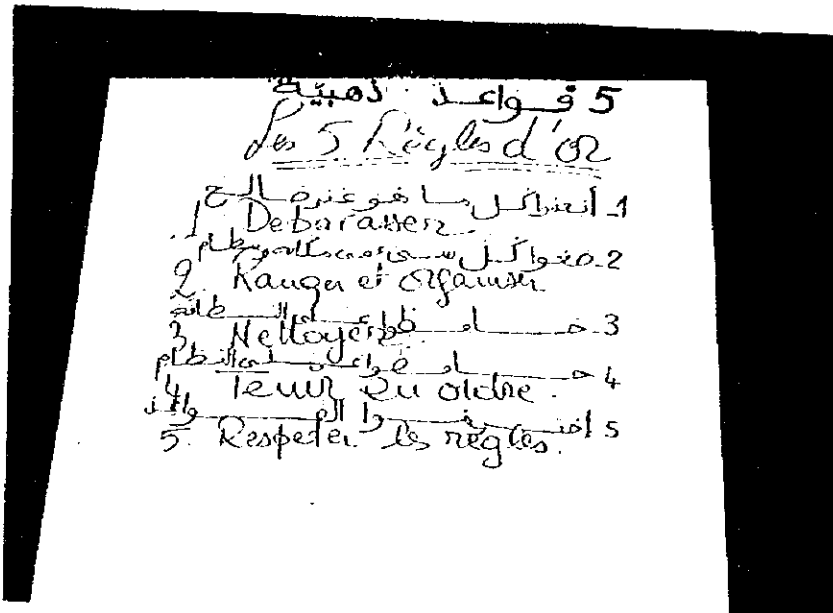 5 قواعد ذهبية
Les 5 Règles d'or
1- أبعدوا كل ما هو غير صالح
1 Debarasser
2- ضعوا كل شيء في مكانه
2. Ranger et organiser
3- حافظوا على النظافة
3 Nettoyer
4- حافظوا على النظام
4 Tenir en ordre.
5 القواعد
5. Respeter les règles.